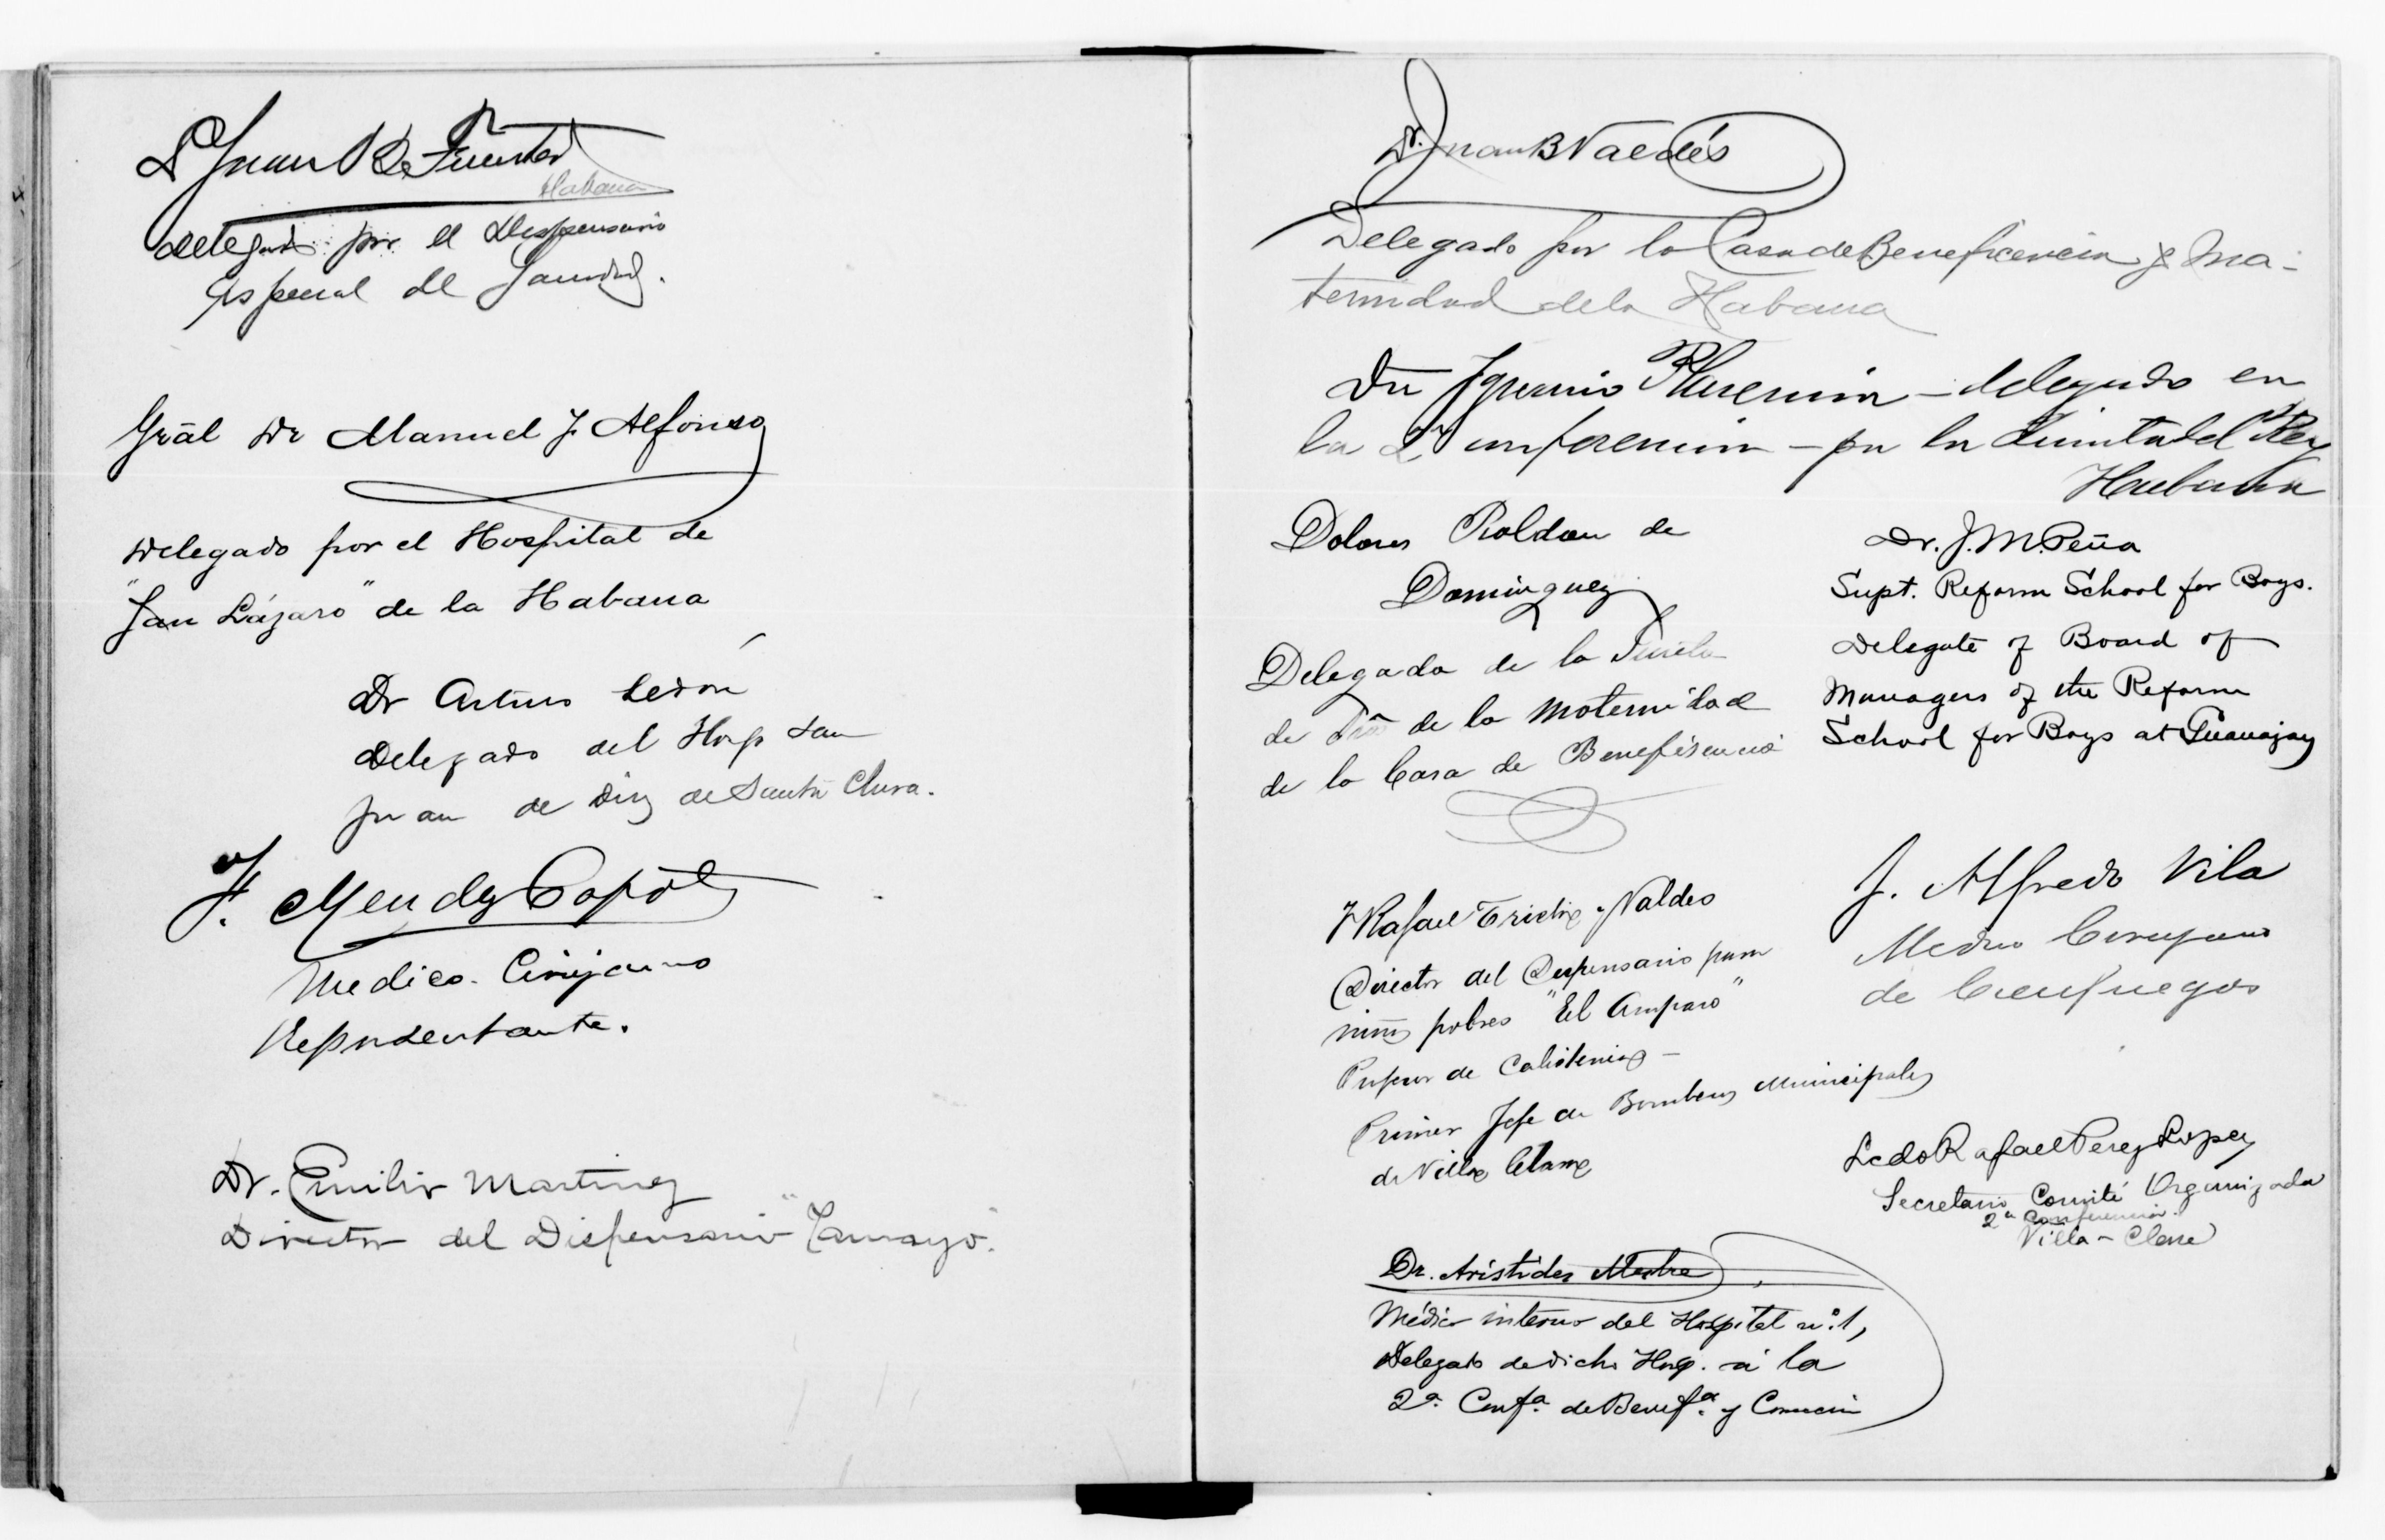 Dr Juan B de Fuentes
Habana
delegado por el Dispensario
Especial de
Grãl Dr Manuel F. Alfonso
Delegado por el Hospital de
"San Lázaro" de la Habana
Dr Arturo Ledón
Delegado del Hosp San
Juan de Dios de Santa Clara.
F. Mendez Capote
Medico-Cirujano
Representante.
Dr. Emilio Martinez
Director del Dispensario "Tamayo".
Dr. Juan B Valdés
Delegado por la Casa de Beneficencia y Ma-
ternidad de la Habana
Dr Ignacio Plasencia - delegado en
la 2ª conferencia - por la Quinta del Rey
Habana
Dolores Roldan de
Dominguez
Delegada de la
de de la Maternidad
de la Casa de Benefisencia
Dr. J. M. Peña
Supt. Reform School for Boys.
Delegate of Board of
Managers of the Reform
School for Boys at Guanajay
J. Rafael Tristá y Valdes
Director del Dispensario para
niños pobres "El Amparo"
Profesor de Calistenia -
Primer Jefe de Bomberos Municipales
de Villa Clara
J. Alfredo Vila
Medico Cirujano
de Cienfuegos
Lcdo Rafael Perez Lopez
Secretario Comité Organizador
2ª Conferencia.
Villa-Clara
Dr. Arístides Mestre
Médico interno del Hospital nº. 1,
Delegado de dicho Hosp. á la
2ª. Confª. de Benefª. y Correccion